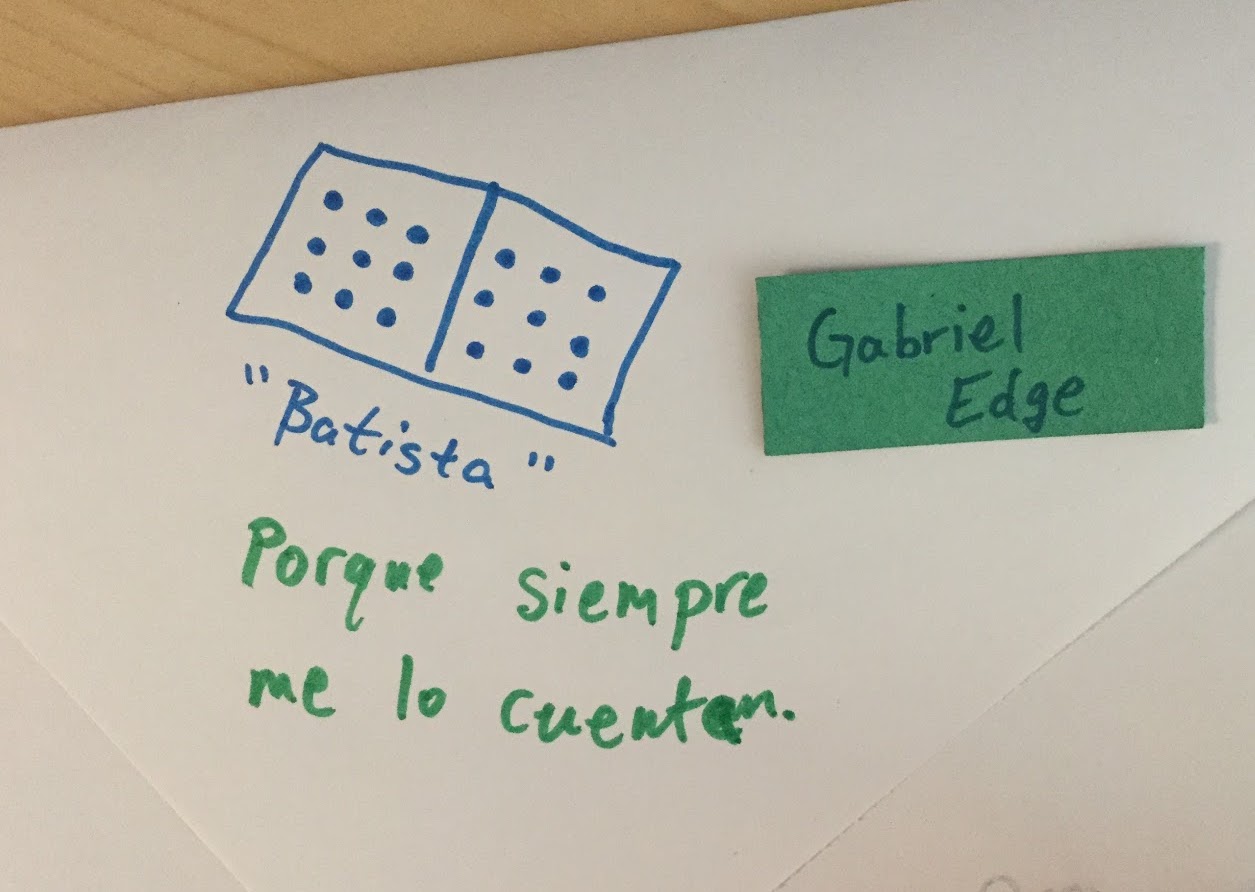 "Batista"
Gabriel
Edge
Porque siempre
me lo cuentan.